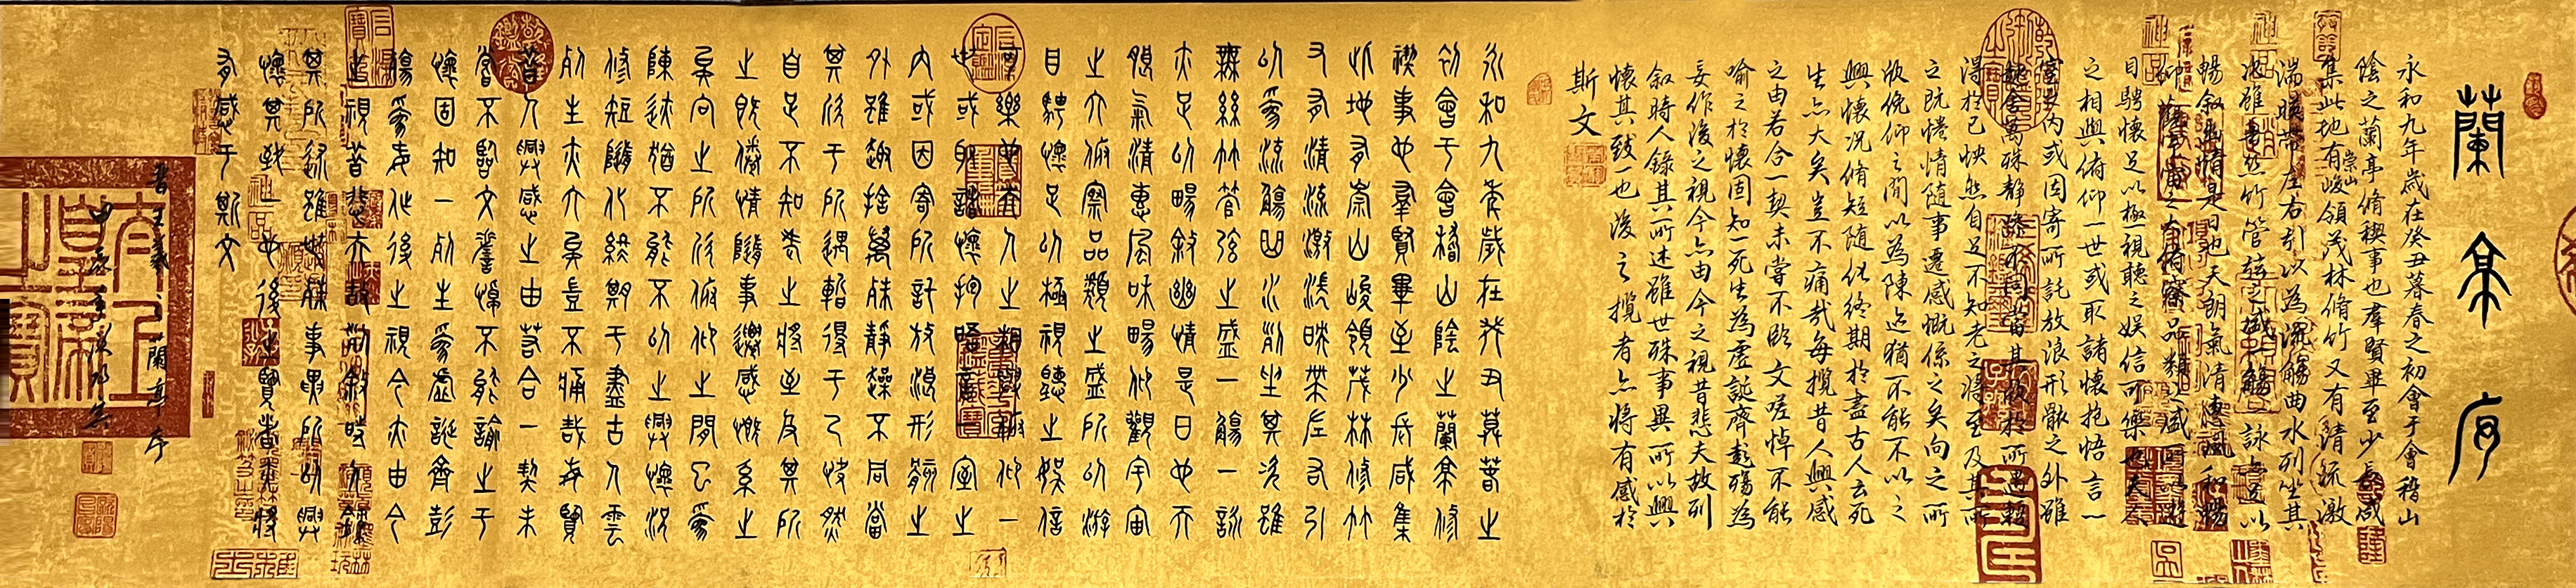 蘭亭序
永和九年歲在癸丑暮春之初會于會稽山
陰之蘭亭脩稧事也群賢畢至少長咸
集此地有崇山峻領茂林脩竹又有清流激
湍暎帶左右引以為流觴曲水列坐其
次雖無絲竹管弦之盛一觴一詠亦足以
暢叙幽情是日也天朗氣清惠風和暢
仰觀宇宙之大俯察品類之盛所以遊
目騁懷足以極視聽之娛信可樂也夫人
之相與俯仰一世或取諸懷抱悟言一
室之內或因寄所託放浪形骸之外雖
趣舍萬殊静躁不同當其欣於所遇暫
得於己怏然自足不知老之將至及其所
之既惓情随事遷感慨係之矣向之所
欣俛仰之閒以為陳迹猶不能不以之
興懷況脩短随化終期於盡古人云死
生亦大矣豈不痛哉每攬昔人興感
之由若合一契未嘗不臨文嗟悼不能
喻之於懷固知一死生為虛誕齊彭殤為
妄作後之視今亦由今之視昔悲夫故列
叙時人錄其所述雖世殊事異所以興
懷其致一也後之攬者亦將有感於
斯文
永和九年歲在癸丑暮春之
初會于會稽山陰之蘭亭修
禊事也群賢畢至少長咸集
此地有崇山峻領茂林修竹
又有清流激湍映帶左右引
以為流觴曲水列坐其次雖
無絲竹管弦之盛一觴一詠
亦足以暢敘幽情是日也天
朗氣清惠風和暢仰觀宇宙
之大俯察品類之盛所以游
目騁懷足以極視聽之娛信
可樂也夫人之相與俯仰一
世或取諸懷抱晤言一室之
內或因寄所託放浪形骸之
外雖趣捨萬殊靜躁不同當
其欣于所遇暫得于己快然
自足不知老之將至及其所
之既倦情隨事遷感慨系之
矣向之所欣俯仰之間已為
陳迹猶不能不以之興懷況
修短隨化終期于盡古人云
死生亦大矣豈不痛哉每覽
昔人興感之由若合一契未
嘗不臨文嗟悼不能喻之于
懷固知一死生為虛誕齊彭
殤為妄作後之視今亦由今
之視昔悲夫故列敘時人錄
其所述雖世殊事異所以興
懷其致一也後之覽者亦將
有感于斯文
晉王羲之蘭亭序